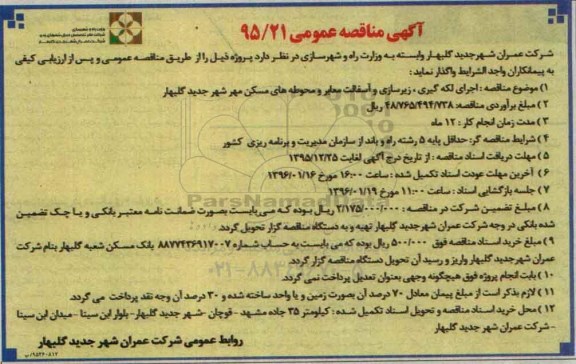 آگهی مناقصه عمومی ۹۵/۲۱
شرکت عمران شهر جدید گلبهار وابسته به وزارت راه و شهرسازی در نظر دارد پروژه ذیل را از طریق مناقصه عمومی و پس از ارزیابی کیفی
به پیمانکاران واجد الشرایط واگذار نماید:
۱) موضوع مناقصه : اجرای لکه گیری ، زیرسازی و آسفالت معابر و محوطه های مسکن مهر شهر جدید گلبهار
۲) مبلغ برآوردی مناقصه: ۴۸/۷۶۵/۴۹۴/۷۳۸ ریال
۳) مدت زمان انجام کار : ۱۲ ماه
۴) شرایط مناقصه گر: حداقل پایه ۵ رشته راه و باند از سازمان مدیریت و برنامه ریزی کشور
۵) مهلت دریافت اسناد مناقصه : از تاریخ درج آگهی لغایت ۱۳۹۵/۱۲/۲۵
۶) آخرین مهلت عودت اسناد تکمیل شده : ساعت ۱۶:۰۰ مورخ ۱۳۹۶/۰۱/۱۶
۷) جلسه بازگشایی اسناد : ساعت ۱۱:۰۰ مورخ ۱۳۹۶/۰۱/۱۹
۸) مبلغ تضمین شرکت در مناقصه : ۳/۱۷۵/۰۰۰/۰۰۰ ریال بوده که می بایست بصورت ضمانت نامه معتبر بانکی و یا چک تضمین
شده بانکی در وجه شرکت عمران شهر جدید گلبهار تهیه و به دستگاه مناقصه گزار تحویل گردد.
۹) مبلغ خرید اسناد مناقصه فوق ۵۰۰/۰۰۰ ریال بوده که می بایست به حساب شماره ۸۸۷۷۴۳۶۹۱۷۰۰۷ بانک مسکن شعبه گلبهار بنام شرکت
عمران شهر جدید گلبهار واریز و رسید آن تحویل دستگاه مناقصه گزار گردد.
۱۰) بابت انجام پروژه فوق هیچگونه وجهی بعنوان تعدیل پرداخت نمی گردد.
۱۱) لازم بذکر است از مبلغ پیمان معادل ۷۰ درصد آن بصورت زمین و یا واحد ساخته شده و ۳۰ درصد آن وجه نقد پرداخت می گردد.
۱۲) محل خرید اسناد مناقصه و تحویل اسناد تکمیل شده : کیلومتر ۳۵ جاده مشهد - قوچان -شهر جدید گلبهار-بلوار ابن سینا -میدان ابن سینا
-شرکت عمران شهر جدید گلبهار
روابط عمومی شرکت عمران شهر جدید گلبهار
ParsNamadData